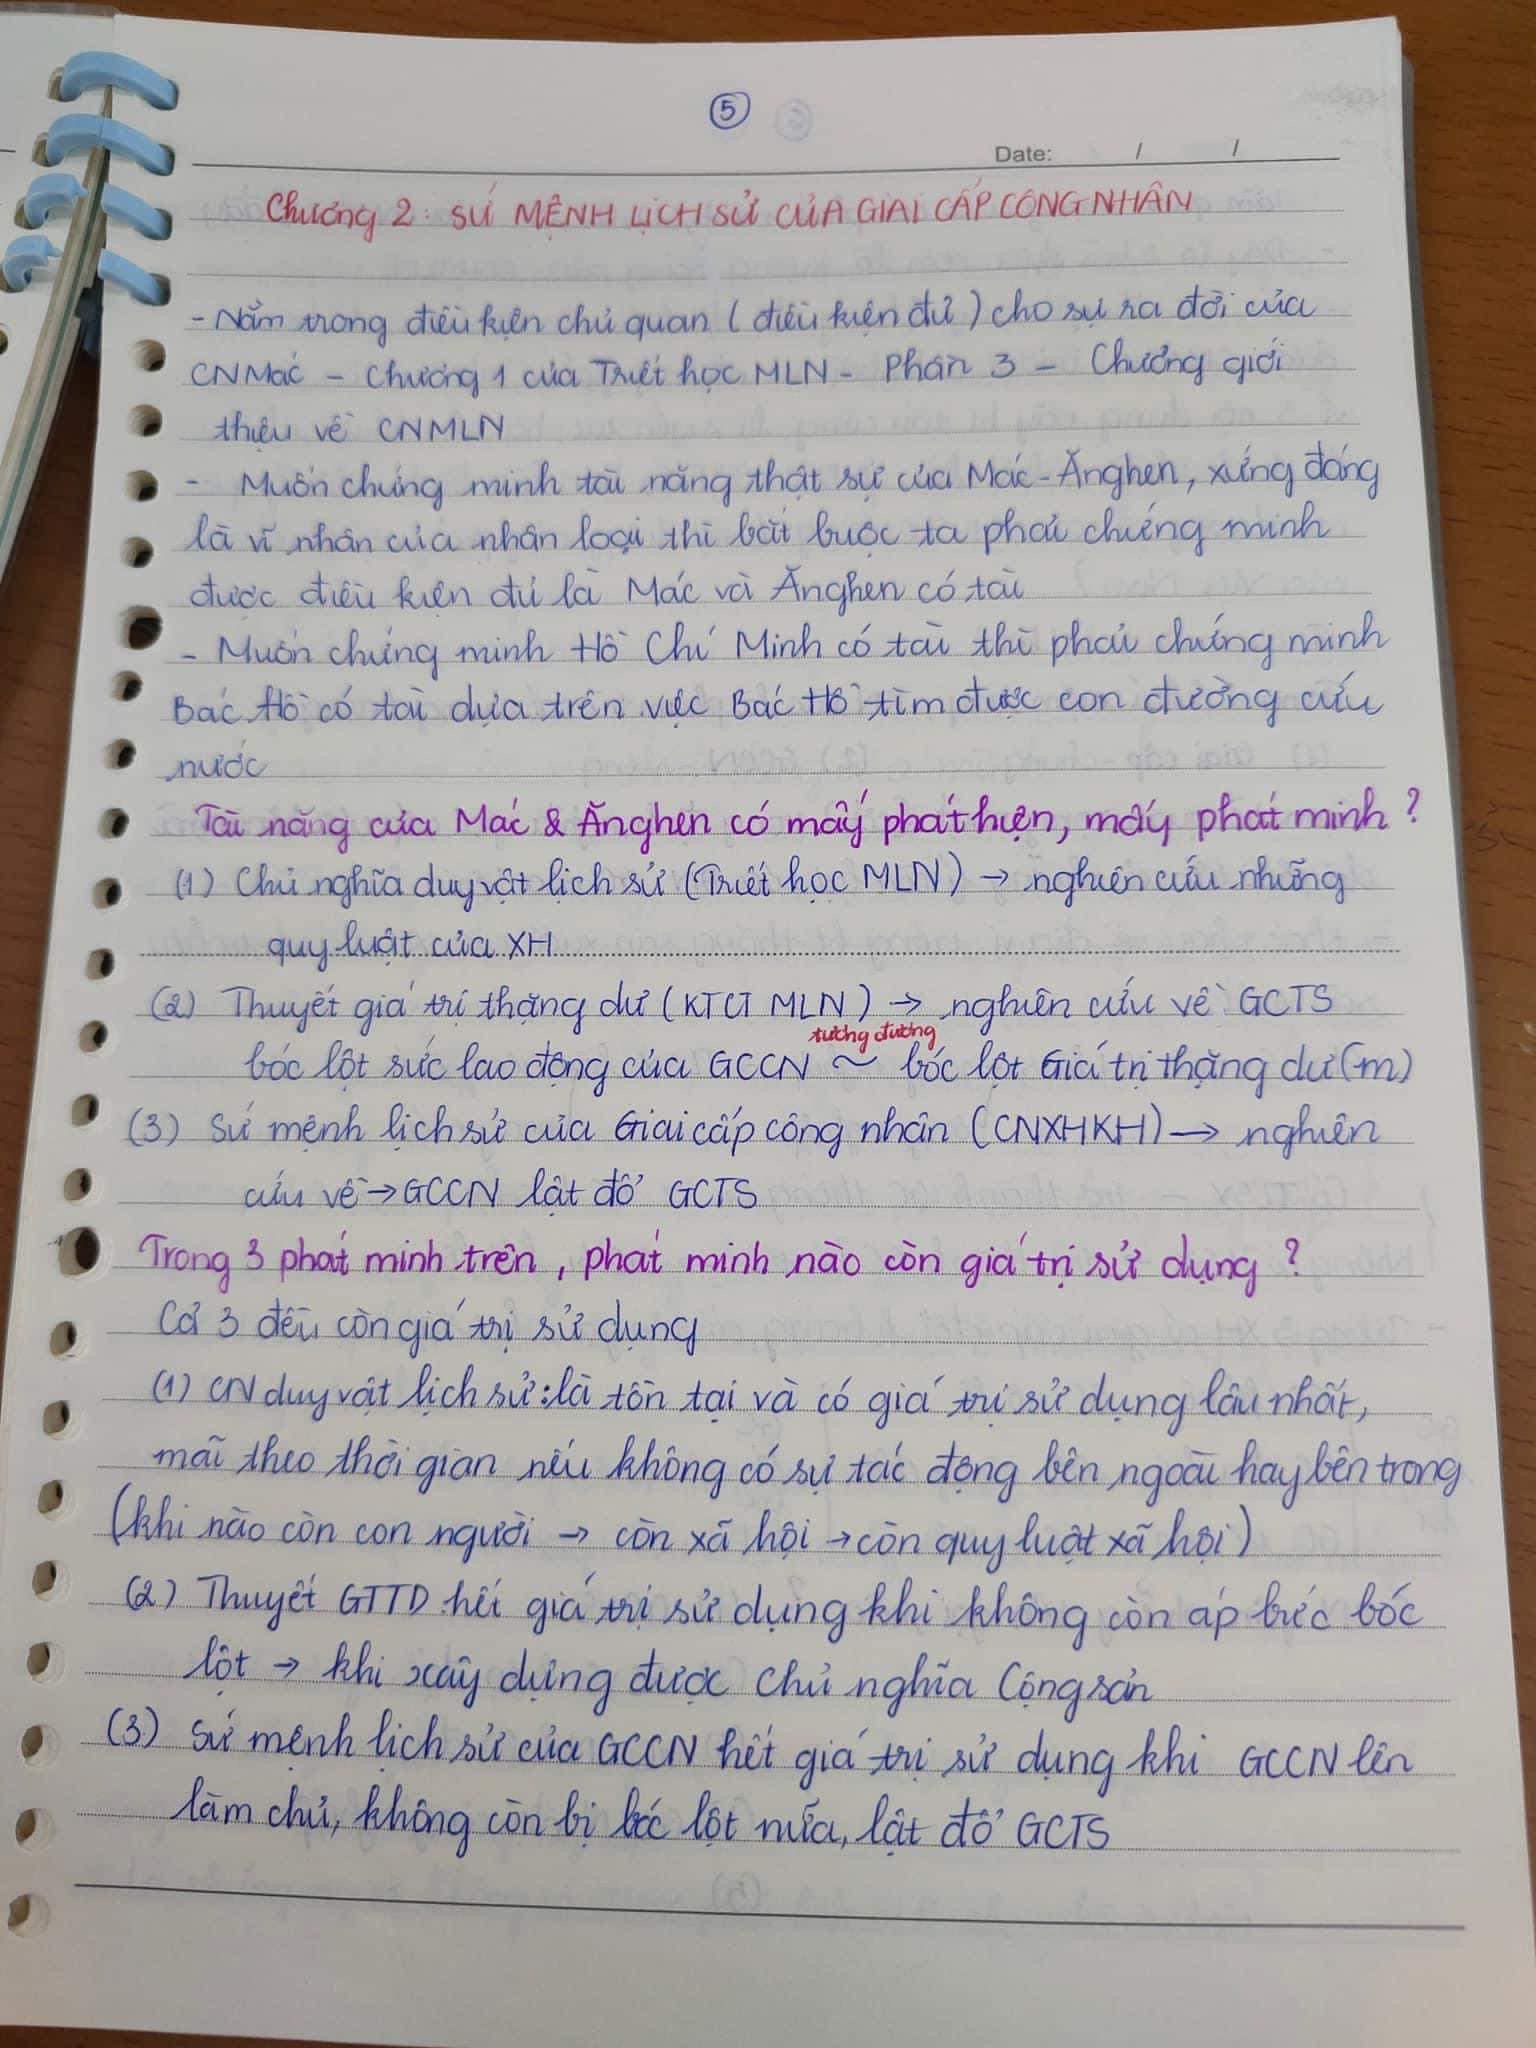 5
Date: / /
Chương 2: SỨ MỆNH LỊCH SỬ CỦA GIAI CẤP CÔNG NHÂN
- Nằm trong điều kiện chủ quan (điều kiện đủ) cho sự ra đời của
CNMác - Chương 1 của Triết học MLN - Phần 3 - Chương giới
thiệu về CNMLN
- Muốn chứng minh tài năng thật sự của Mác - Ănghen, xứng đáng
là vĩ nhân của nhân loại thì bắt buộc ta phải chứng minh
được điều kiện đủ là Mác và Ănghen có tài
- Muốn chứng minh Hồ Chí Minh có tài thì phải chứng minh
Bác Hồ có tài dựa trên việc Bác Hồ tìm được con đường cứu
nước
Tài năng của Mác & Ănghen có mấy phát hiện, mấy phát minh?
(1) Chủ nghĩa duy vật lịch sử (Triết học MLN) → nghiên cứu những
quy luật của XH
(2) Thuyết giá trị thặng dư (KTCT MLN) → nghiên cứu về GCTS
tương đương
bóc lột sức lao động của GCCN ~ bóc lột Giá trị thặng dư (m)
(3) Sứ mệnh lịch sử của Giai cấp công nhân (CNXHKH) → nghiên
cứu về → GCCN lật đổ GCTS
Trong 3 phát minh trên, phát minh nào còn giá trị sử dụng?
Cả 3 đều còn giá trị sử dụng
(1) CN duy vật lịch sử: là tồn tại và có giá trị sử dụng lâu nhất,
mãi theo thời gian nếu không có sự tác động bên ngoài hay bên trong
(khi nào còn con người → còn xã hội → còn quy luật xã hội)
(2) Thuyết GTTD hết giá trị sử dụng khi không còn áp bức bóc
lột → khi xây dựng được Chủ nghĩa Cộng sản
(3) Sứ mệnh lịch sử của GCCN hết giá trị sử dụng khi GCCN lên
làm chủ, không còn bị bóc lột nữa, lật đổ GCTS